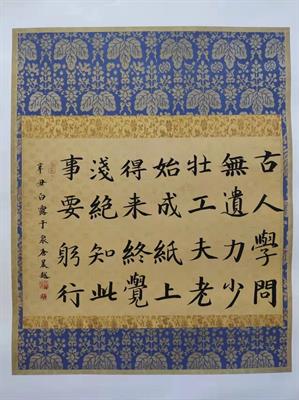 古人學問
無遺力少
壯工夫老
始成紙上
得来終覺
淺絕知此
事要躬行
辛丑白露于泉